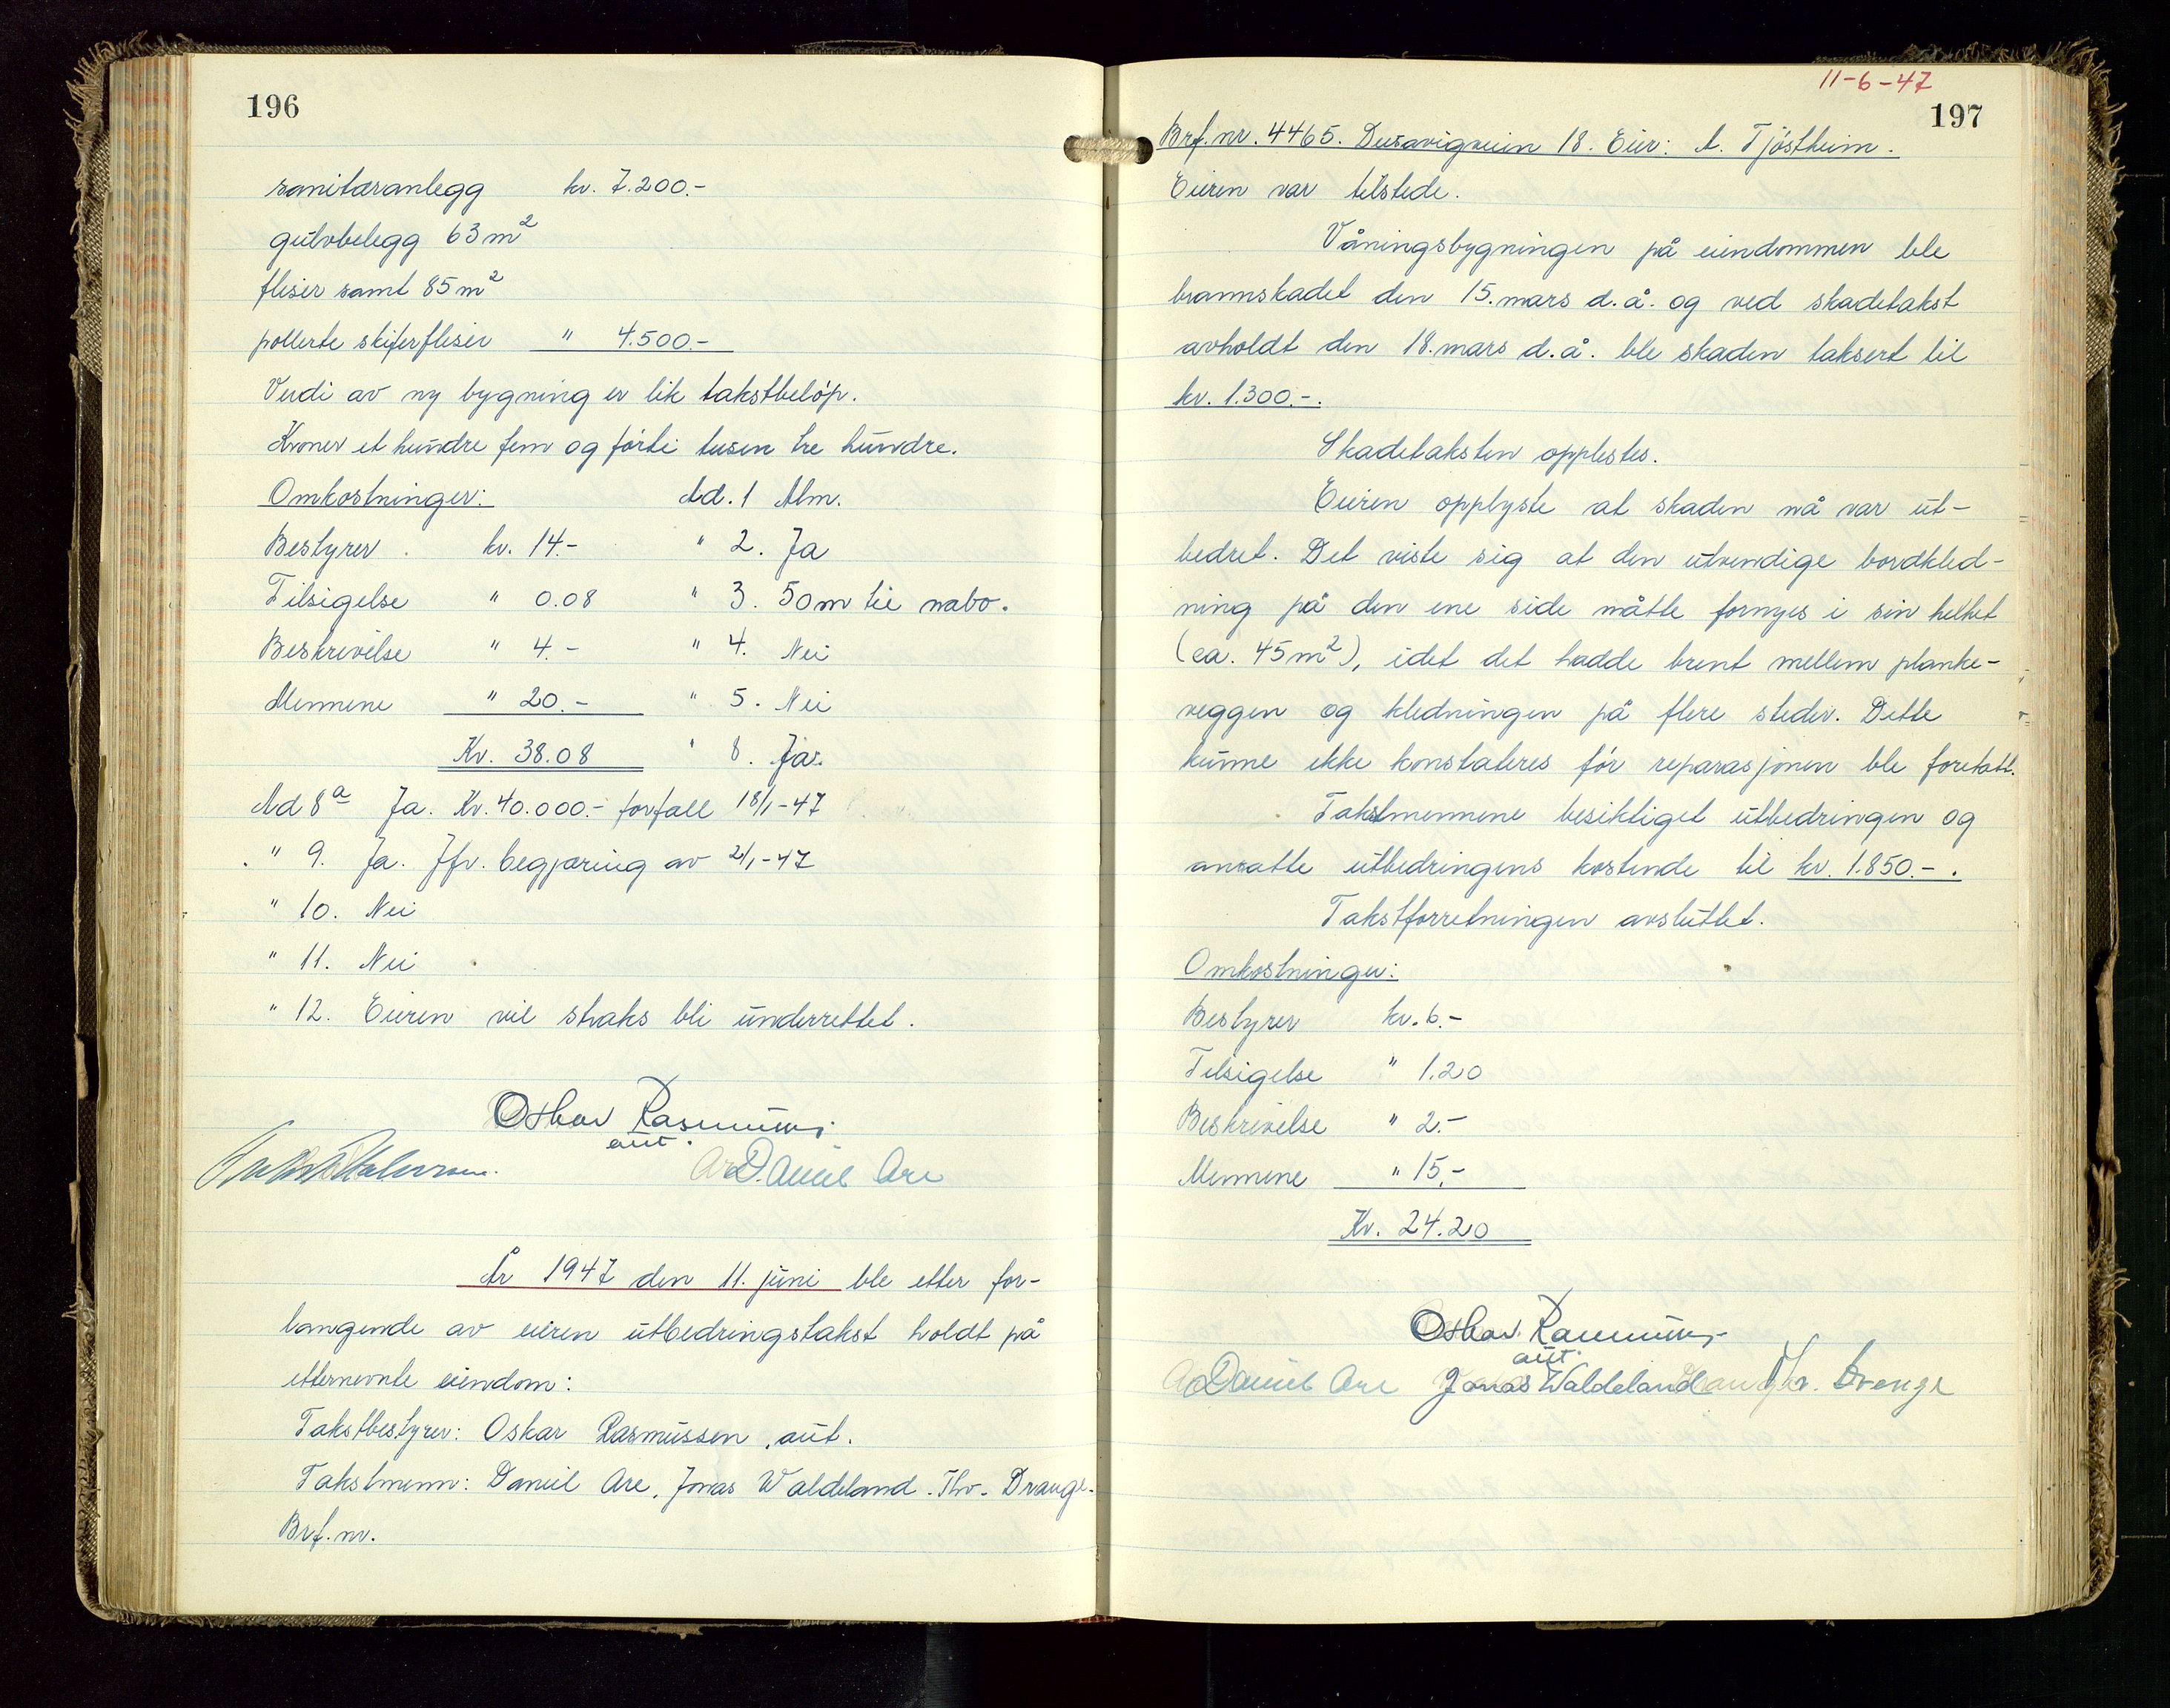 196
sanitæranlegg kr. 7.200.-
gulvbelegg 63 m²
fliser samt 85 m²
pollerte skiferfliser " 4.500.-
Verdi av ny bygning er lik takstbeløp.
Kroner et hundre fem og førti tusen tre hundre.
Omkostninger: Ad. 1 Alm.
Bestyrer kr. 14.- " 2. Ja
Tilsigelse " 0.08 " 3. 50 m til nabo.
Beskrivelse " 4.- " 4. Nei
Mennene " 20.- " 5. Nei
Kr. 38.08 " 8. Ja.
Ad 8a Ja. Kr. 40.000.- forfall 18/1-47
" 9. Ja. Jfr. begjæring av 21/1-47
" 10. Nei
" 11. Nei
" 12. Eieren vil straks bli underrettet.
Oskar Rasmussen
aut.
Daniel Are
År 1947 den 11. juni ble etter for-
langende av eieren utbedringstakst holdt på
etternevnte eiendom:
Takstbestyrer: Oskar Rasmussen, aut.
Takstmenn: Daniel Are, Jonas Waldeland. Thv. Drange.
Brf. nr.
11-6-47
197
Brf. nr. 4465. Dusavigveien 18. Eier: A. Tjøstheim.
Eieren var tilstede.
Våningsbygningen på eiendommen ble
brannskadet den 15. mars d.å. og ved skadetakst
avholdt den 18. mars d.å. ble skaden taksert til
kr. 1.300.-.
Skadetaksten opplestes.
Eieren opplyste at skaden nå var ut-
bedret. Det viste sig at den utvendige bordkled-
ning på den ene side måtte fornyes i sin helhet
(ca. 45 m²), idet det hadde brent mellem planke-
veggen og kledningen på flere steder. Dette
kunne ikke konstateres før reparasjonen ble foretatt.
Takstmennene besiktiget utbedringen og
ansatte utbedringens kostende til kr. 1.850.-.
Takstforretningen avsluttet.
Omkostninger:
Bestyrer kr. 6.-
Tilsigelse " 1.20
Beskrivelse " 2.-
Mennene " 15.-
Kr. 24.20
Oskar Rasmussen
aut.
Daniel Are Jonas Waldeland Thv. Drange